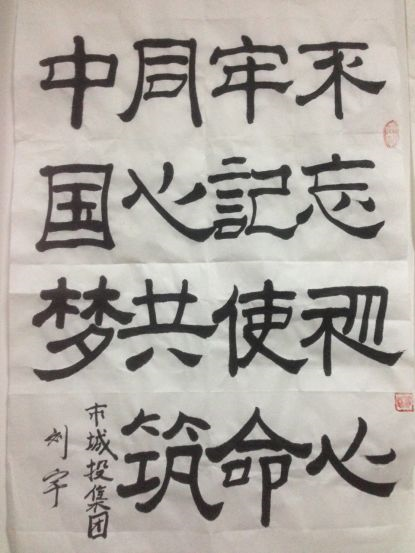 不忘初心
牢記使命
同心共筑
中国梦
市城投集团
刘宇